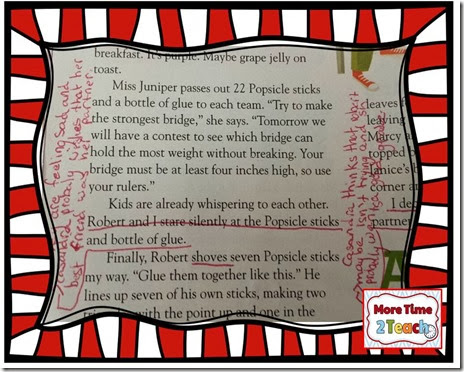 breakfast. It's purple. Maybe grape jelly on
toast.
Miss Juniper passes out 22 Popsicle sticks
and a bottle of glue to each team. "Try to make
the strongest bridge," she says. "Tomorrow we
will have a contest to see which bridge can
hold the most weight without breaking. Your
bridge must be at least four inches high, so use
your rulers."
Kids are already whispering to each other.
Robert and I stare silently at the Popsicle sticks
and bottle of glue.
Finally, Robert shoves seven Popsicle sticks
my way. "Glue them together like this." He
lines up seven of his own sticks, making two
with the point up and one in the
are feeling sad and
Cassandra probaly wishes that her
best friend was her partner.
Cassandra thinks that
maybe isn't trying and
probaly
leaves f
leaving
Marcy a
opped b
Janice's b
corner a
I dec
partner
More Time
2Teach